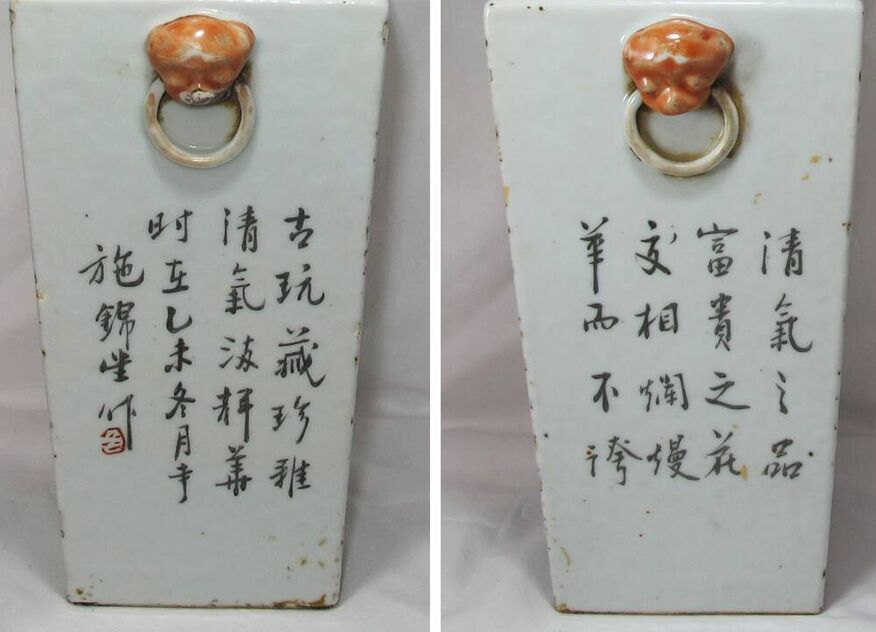 古玩藏珍雅
清氣波輝華
时在乙未冬月
施錦作
清氣之品
富貴之花
交相爛熳
華而不誇